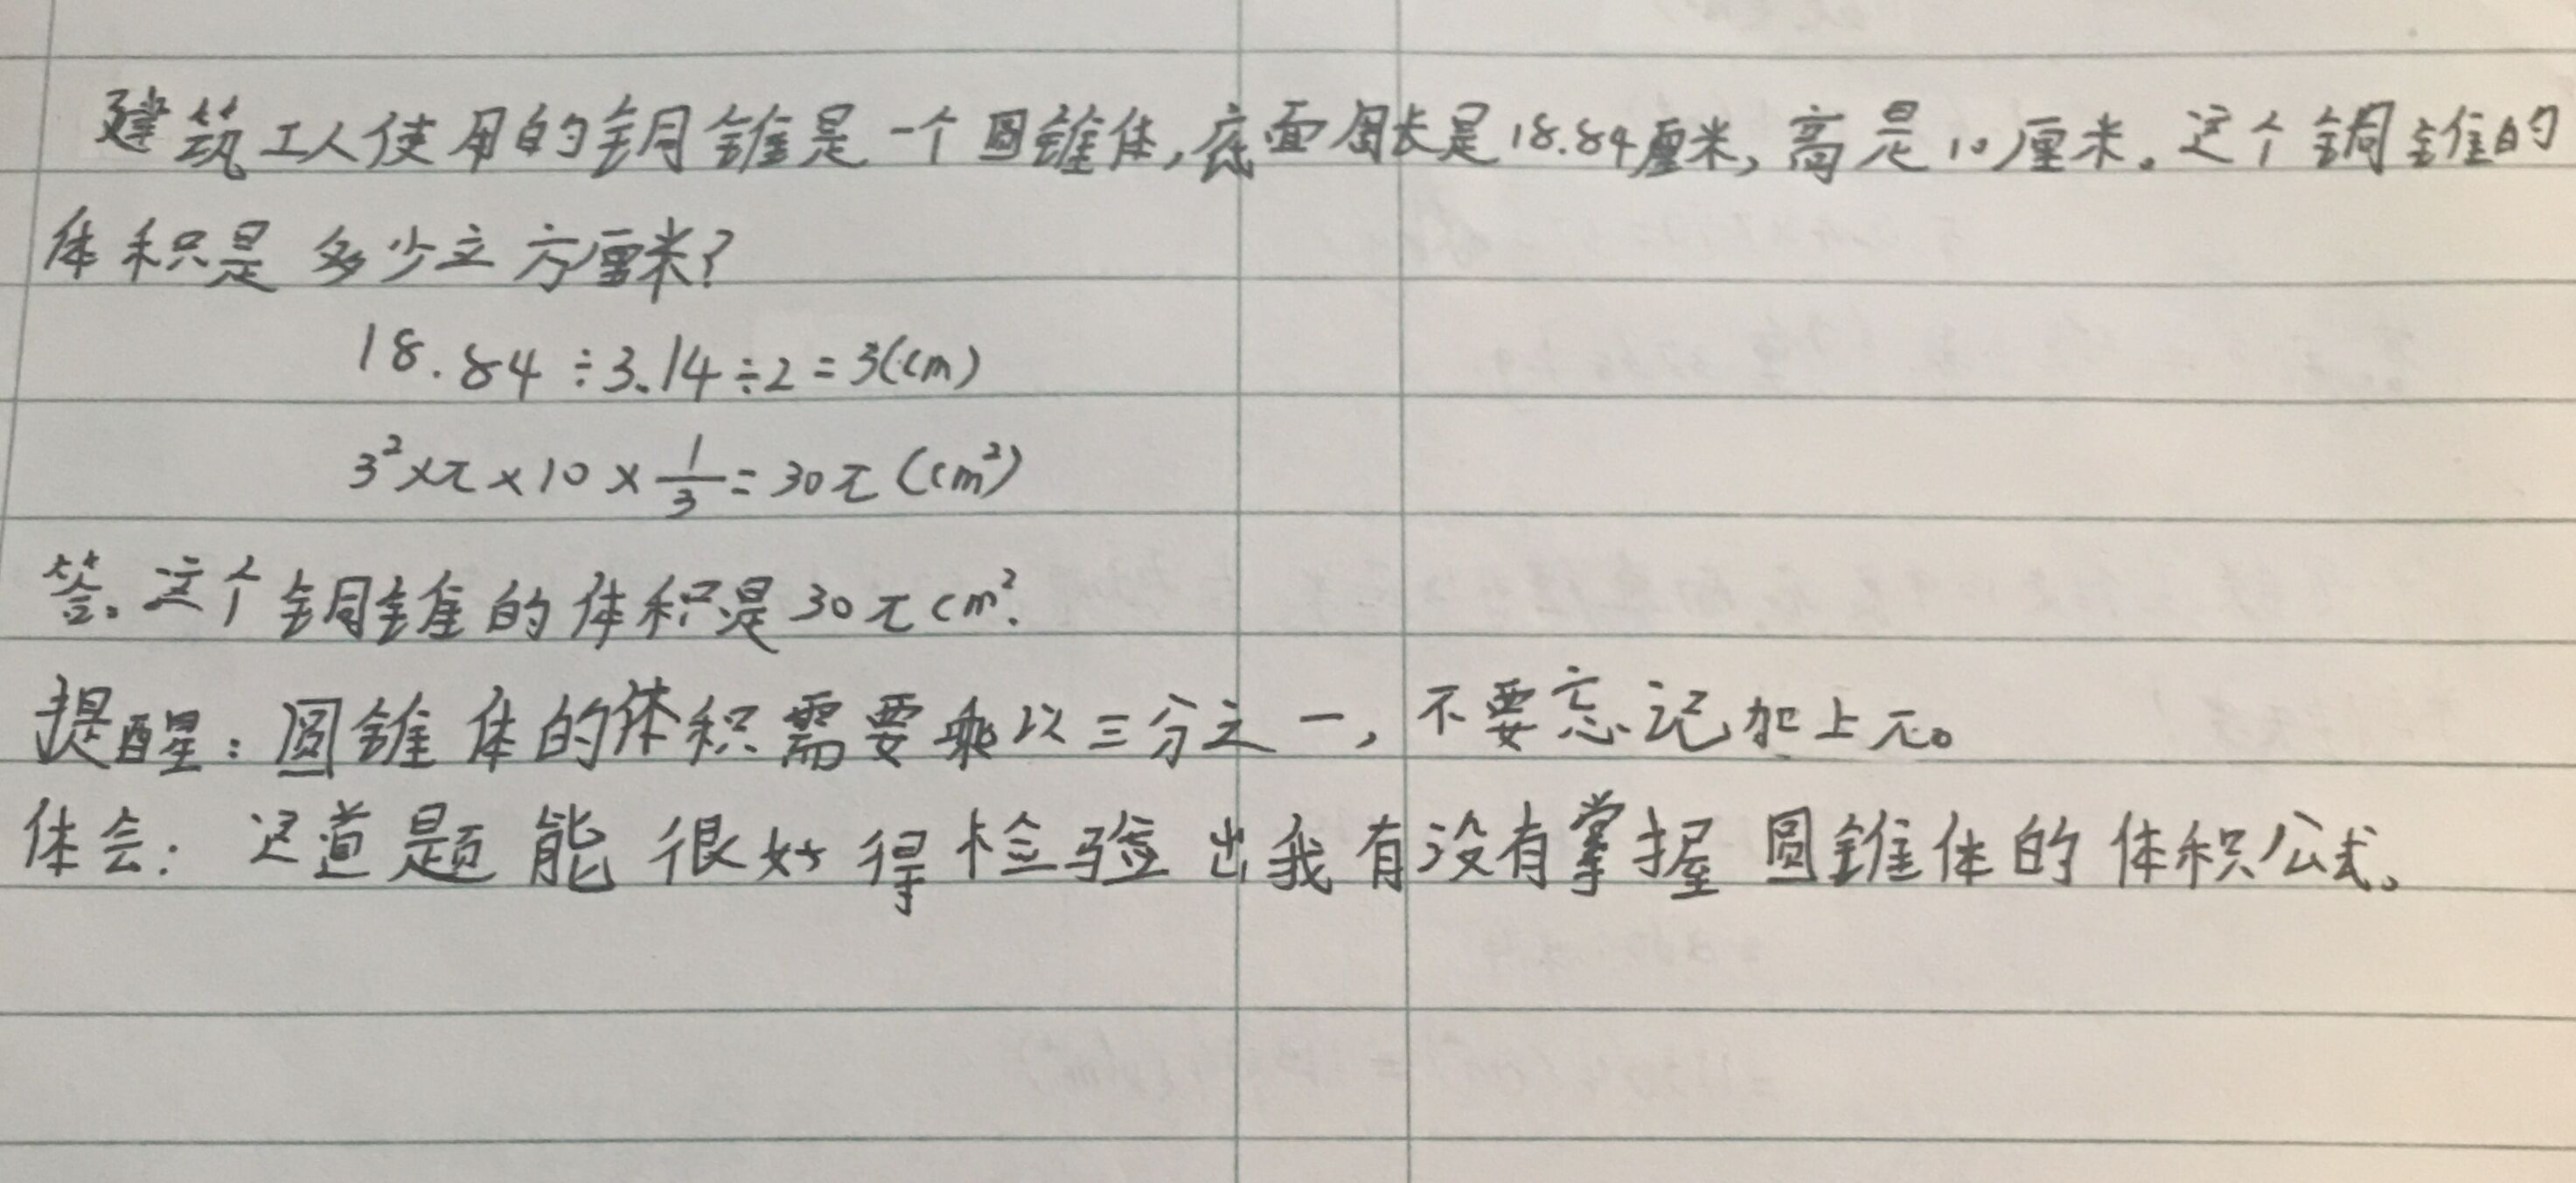 建筑工人使用的铜锥是一个圆锥体,底面周长是18.84厘米,高是10厘米。这个铜锥的
体积是多少立方厘米?
18.84÷3.14÷2=3(cm)
3²×π×10×1/3=30π(cm²)
答。这个铜锥的体积是30πcm².
提醒:圆锥体的体积需要乘以三分之一,不要忘记加上π。
体会:这道题能很好得检验出我有没有掌握圆锥体的体积公式。